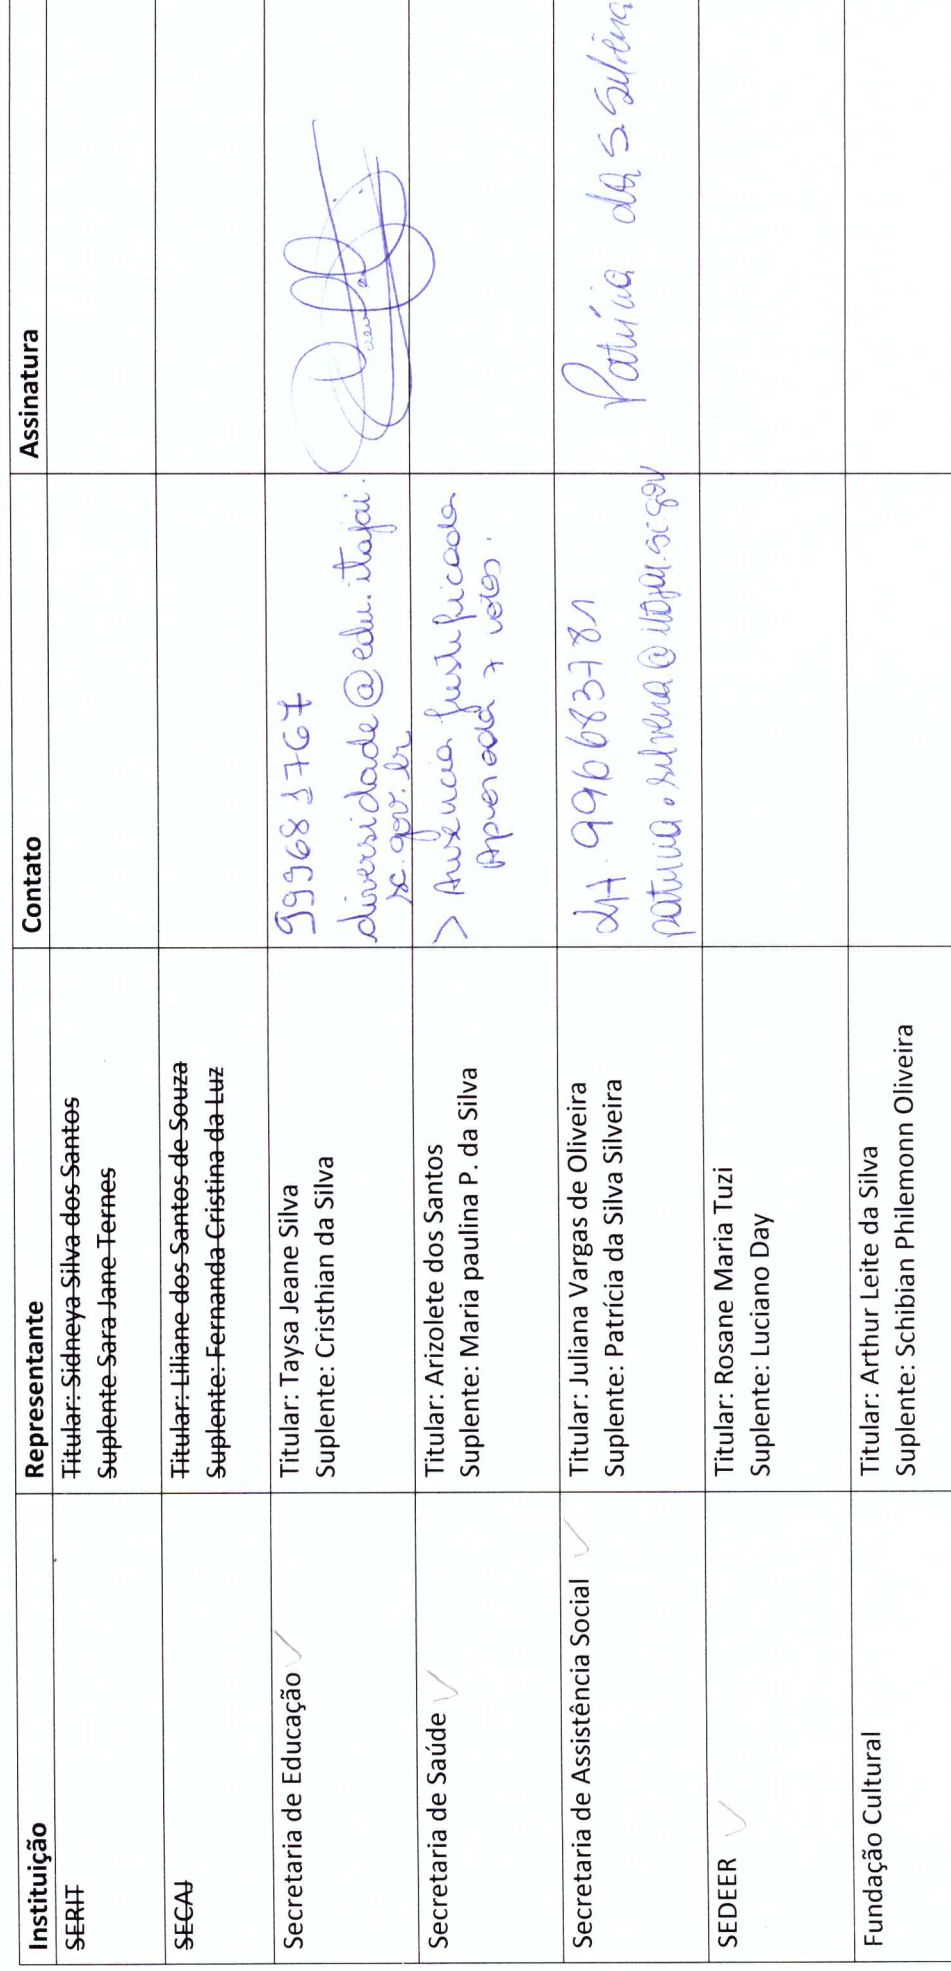 Instituição Representante Contato Assinatura
SERIT
Titular: Sidneya Silva dos Santos
Suplente Sara Jane Ternes
SECAJ
Titular: Liliane dos Santos de Souza
Suplente: Fernanda Cristina da Luz
Secretaria de Educação
Titular: Taysa Jeane Silva
Suplente: Cristhian da Silva
999681767
diversidade@edu.itajai.
sc.gov.br
Secretaria de Saúde
Titular: Arizolete dos Santos
Suplente: Maria paulina P. da Silva
> Ausência justificada
Aprovada 7 votos.
Secretaria de Assistência Social
Titular: Juliana Vargas de Oliveira
Suplente: Patrícia da Silva Silveira
47 996683781
patricia.silveira@itajai.sc.gov
Patrícia da S. Silveira
SEDEER
Titular: Rosane Maria Tuzi
Suplente: Luciano Day
Fundação Cultural
Titular: Arthur Leite da Silva
Suplente: Schibian Philemonn Oliveira